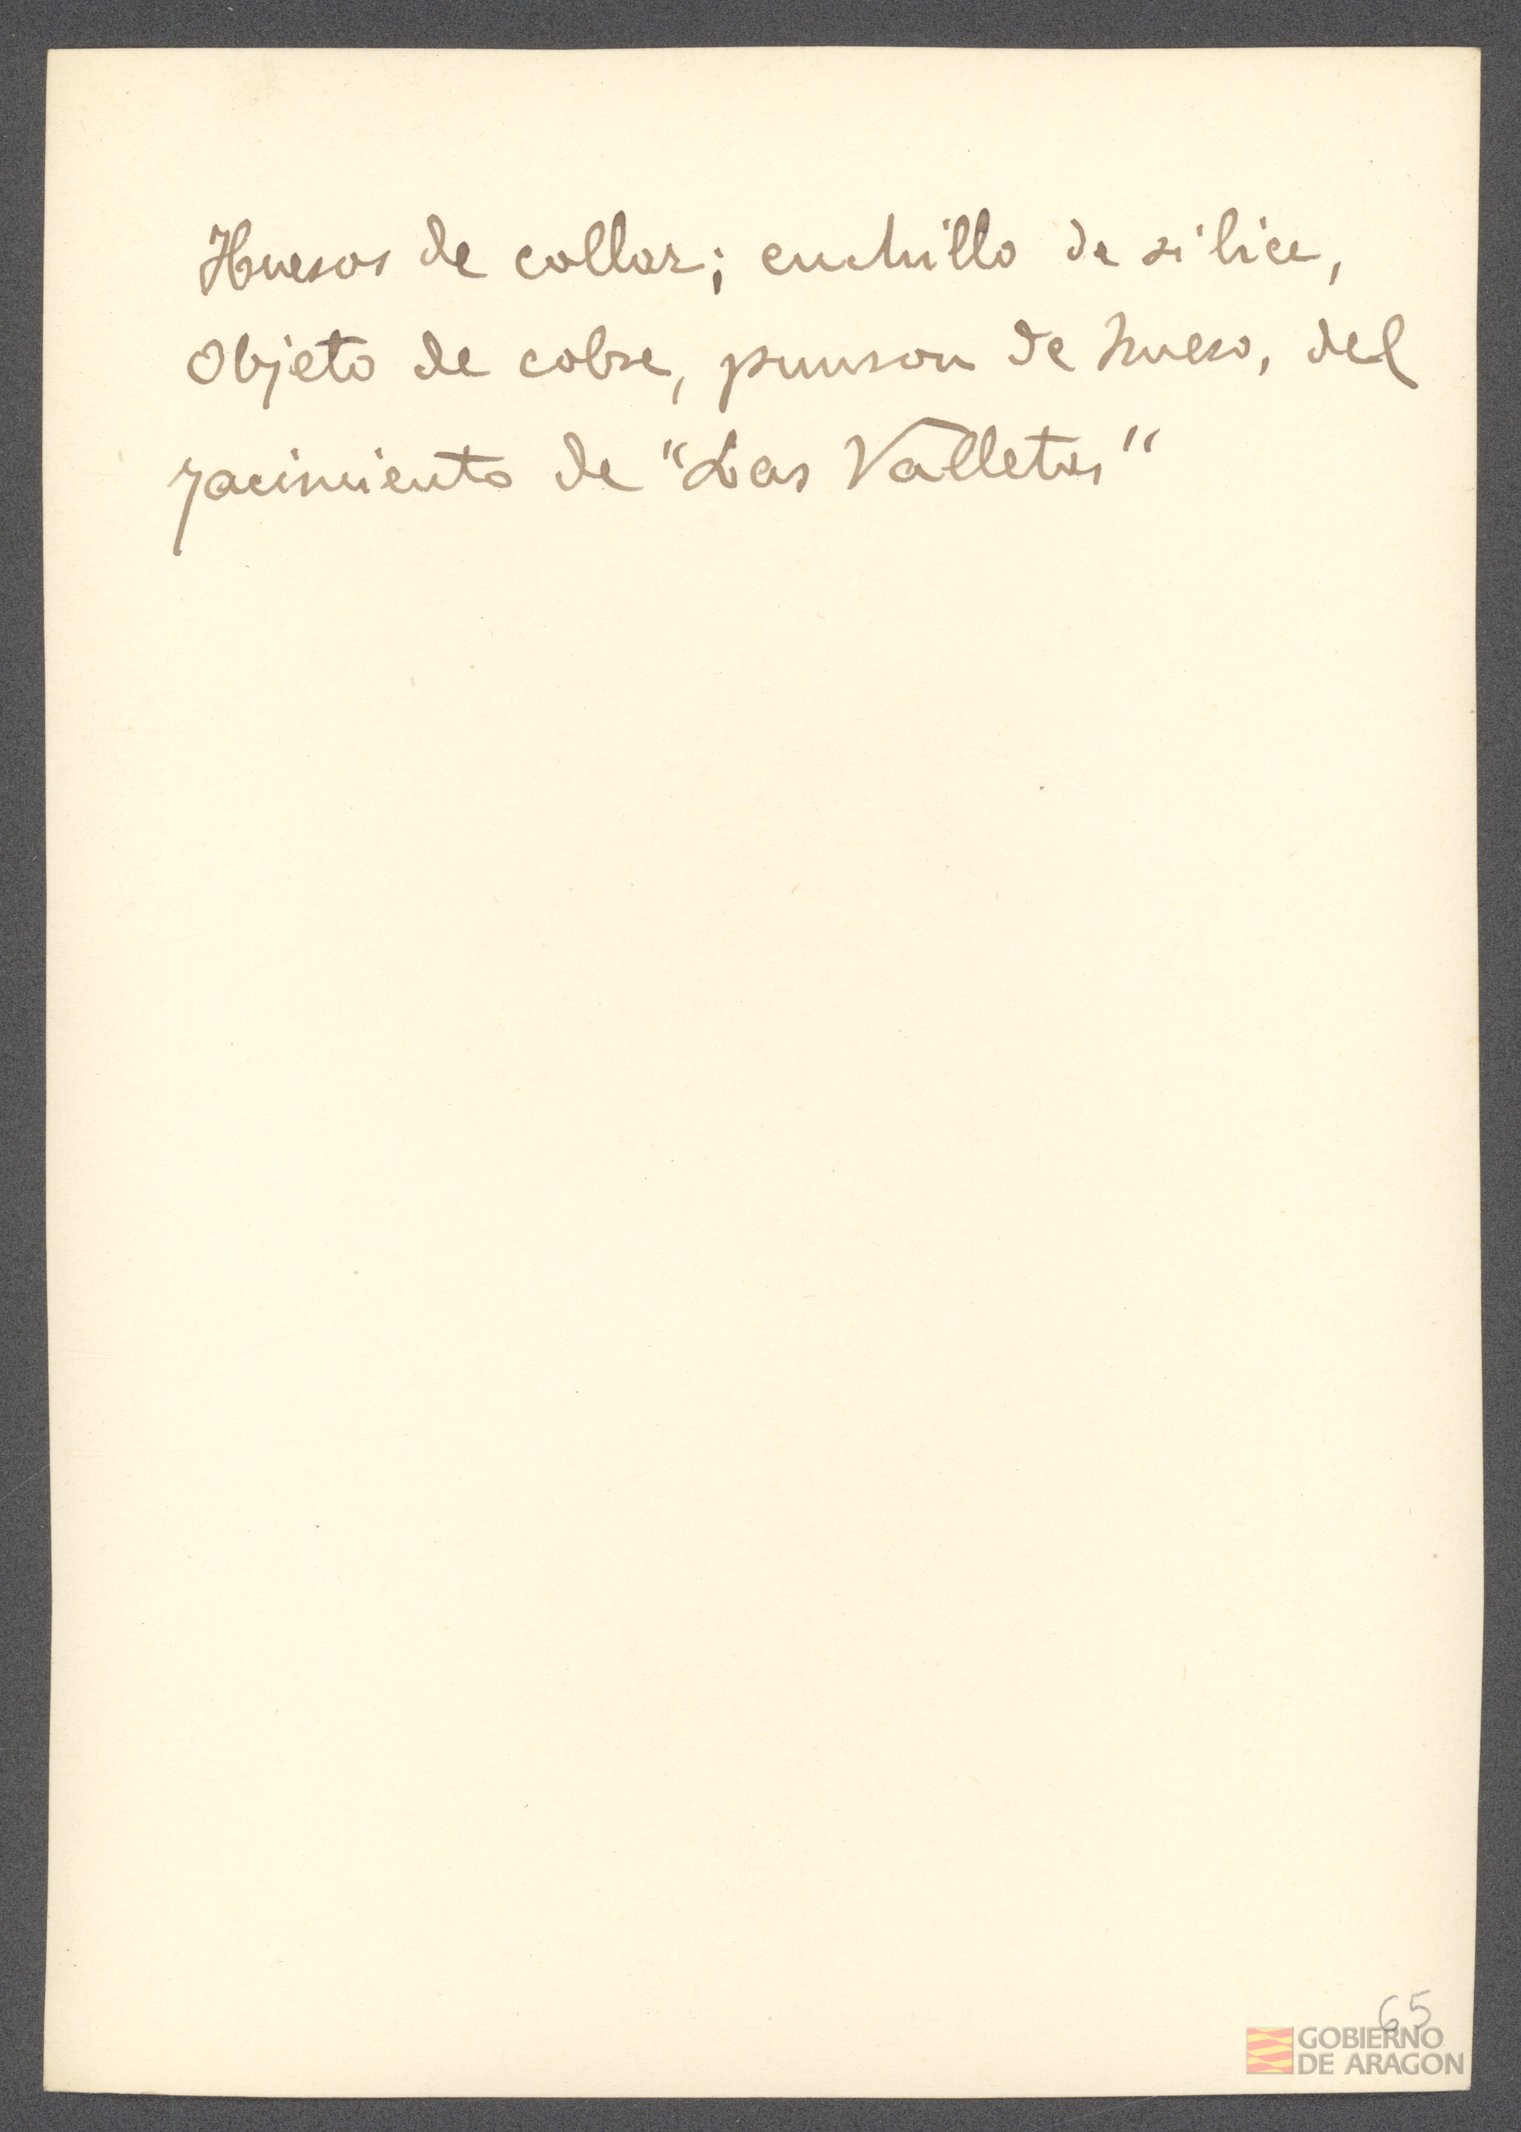 Huesos de collar; cuchillo de silice,
Objeto de cobre, punson de hueso, del
yacimiento de "Las Valletas"
65
GOBIERNO
DE ARAGON